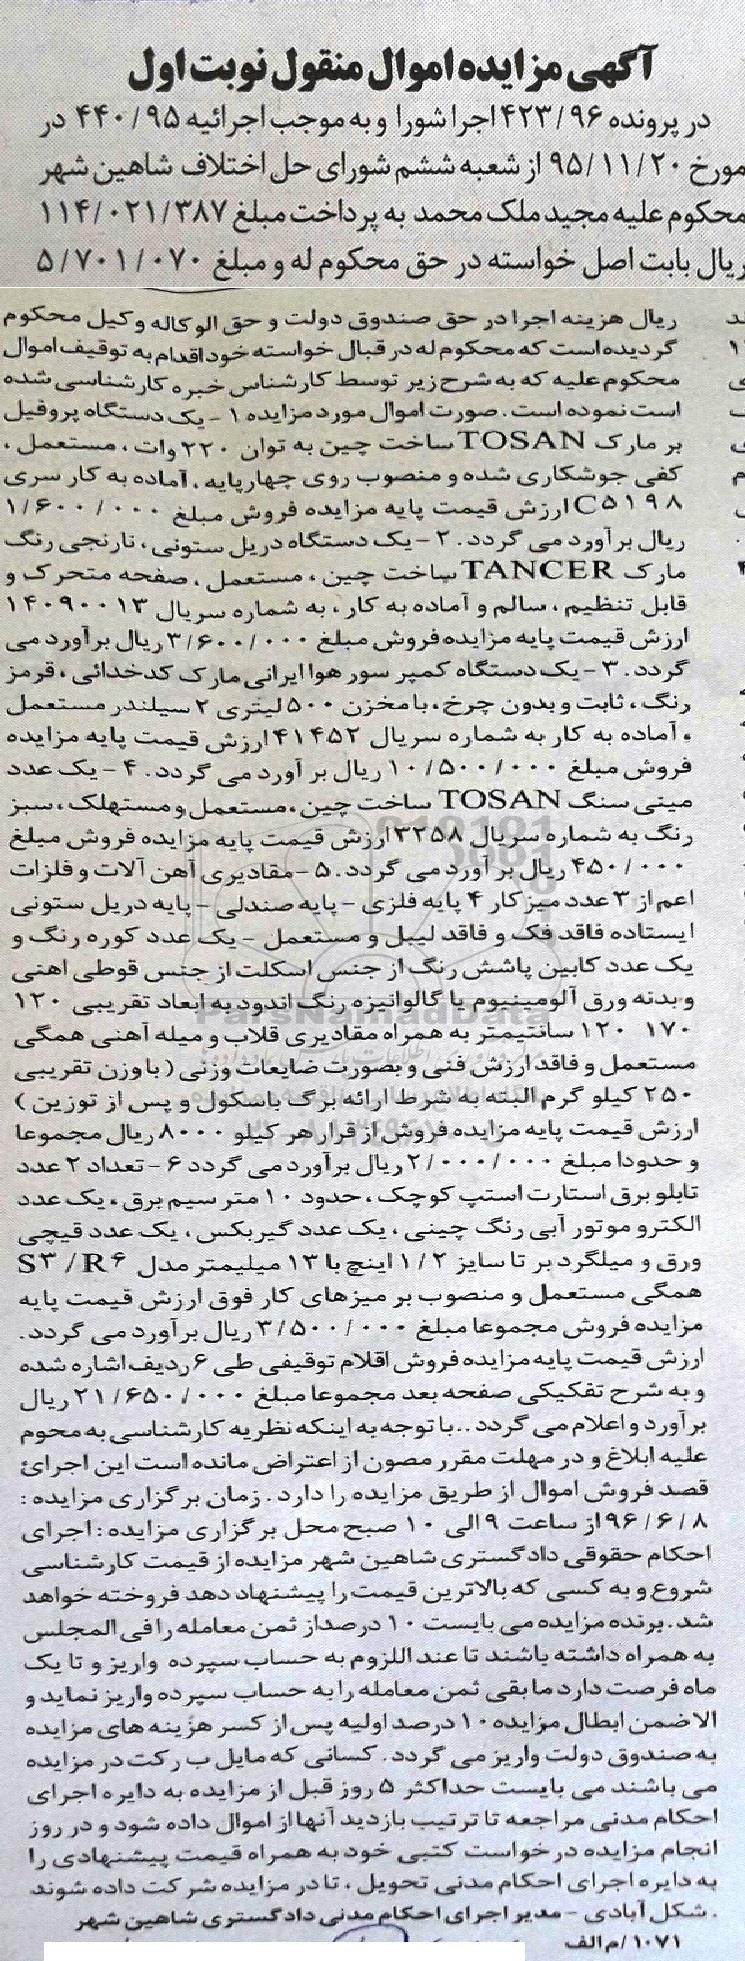 آگهی مزایده اموال منقول نوبت اول
در پرونده ۴۲۳/۹۶ اجرا شورا و به موجب اجرائیه ۴۴۰/۹۵ در
مورخ ۹۵/۱۱/۲۰ از شعبه ششم شورای حل اختلاف شاهین شهر
محکوم علیه مجید ملک محمد به پرداخت مبلغ ۱۱۴/۰۲۱/۳۸۷
ریال بابت اصل خواسته در حق محکوم له و مبلغ ۵/۷۰۱/۰۷۰
ریال هزینه اجرا در حق صندوق دولت و حق الوکاله وکیل محکوم
گردیده است که محکوم له در قبال خواسته خود اقدام به توقیف اموال
محکوم علیه که به شرح زیر توسط کارشناس خبره کارشناسی شده
است نموده است. صورت اموال مورد مزایده ۱- یک دستگاه پروفیل
بر مارک TOSAN ساخت چین به توان ۲۲۰ وات، مستعمل،
کفی جوشکاری شده و منصوب روی چهارپایه، آماده به کار سری
C۵۱۹۸ ارزش قیمت پایه مزایده فروش مبلغ ۱/۶۰۰/۰۰۰
ریال برآورد می گردد. ۲- یک دستگاه دریل ستونی، نارنجی رنگ
مارک TANCER ساخت چین، مستعمل، صفحه متحرک و
قابل تنظیم، سالم و آماده به کار، به شماره سریال ۱۴۰۹۰۰۱۳
ارزش قیمت پایه مزایده فروش مبلغ ۳/۶۰۰/۰۰۰ ریال برآورد می
گردد. ۳- یک دستگاه کمپر سور هوا ایرانی مارک کدخدائی، قرمز
رنگ، ثابت و بدون چرخ، با مخزن ۵۰۰ لیتری ۲ سیلندر مستعمل
، آماده به کار به شماره سریال ۴۱۴۵۲ ارزش قیمت پایه مزایده
فروش مبلغ ۱۰/۵۰۰/۰۰۰ ریال بر آورد می گردد. ۴- یک عدد
مینی سنگ TOSAN ساخت چین، مستعمل و مستهلک، سبز
رنگ به شماره سریال ۳۲۵۸ ارزش قیمت پایه مزایده فروش مبلغ
۴۵۰/۰۰۰ ریال بر آورد می گردد. ۵- مقادیری آهن آلات و فلزات
اعم از ۳ عدد میز کار ۴ پایه فلزی - پایه صندلی - پایه دریل ستونی
ایستاده فاقد فک و فاقد لیبل و مستعمل - یک عدد کوره رنگ و
یک عدد کابین پاشش رنگ از جنس اسکلت از جنس قوطی آهنی
و بدنه ورق آلومینیوم یا گالوانیزه رنگ اندود به ابعاد تقریبی ۱۲۰
۱۷۰ ۱۲۰ سانتیمتر به همراه مقادیری قلاب و میله آهنی همگی
مستعمل و فاقد ارزش فنی و بصورت ضایعات وزنی (با وزن تقریبی
۲۵۰ کیلو گرم البته به شرط ارائه برگ باسکول و پس از توزین)
ارزش قیمت پایه مزایده فروش از قرار هر کیلو ۸۰۰۰ ریال مجموعا
و حدودا مبلغ ۲/۰۰۰/۰۰۰ ریال برآورد می گردد ۶- تعداد ۲ عدد
تابلو برق استارت استپ کوچک، حدود ۱۰ متر سیم برق، یک عدد
الکترو موتور آبی رنگ چینی، یک عدد گیربکس، یک عدد قیچی
ورق و میلگرد بر تا سایز ۱/۲ اینچ با ۱۳ میلیمتر مدل S۳/R۶
همگی مستعمل و منصوب بر میزهای کار فوق ارزش قیمت پایه
مزایده فروش مجموعا مبلغ ۳/۵۰۰/۰۰۰ ریال برآورد می گردد.
ارزش قیمت پایه مزایده فروش اقلام توقیفی طی ۶ ردیف اشاره شده
و به شرح تفکیکی صفحه بعد مجموعا مبلغ ۲۱/۶۵۰/۰۰۰ ریال
برآورد و اعلام می گردد.. با توجه به اینکه نظریه کارشناسی به محوم
علیه ابلاغ و در مهلت مقرر مصون از اعتراض مانده است این اجرائ
قصد فروش اموال از طریق مزایده را دارد. زمان برگزاری مزایده:
۹۶/۶/۸ از ساعت ۹ الی ۱۰ صبح محل برگزاری مزایده: اجرای
احکام حقوقی دادگستری شاهین شهر مزایده از قیمت کارشناسی
شروع و به کسی که بالاترین قیمت را پیشنهاد دهد فروخته خواهد
شد. برنده مزایده می بایست ۱۰ درصد از ثمن معامله را فی المجلس
به همراه داشته باشند تا عند اللزوم به حساب سپرده واریز و تا یک
ماه فرصت دارد مابقی ثمن معامله را به حساب سپرده واریز نماید و
الا ضمن ابطال مزایده ۱۰ درصد اولیه پس از کسر هزینه های مزایده
به صندوق دولت واریز می گردد. کسانی که مایل ب رکت در مزایده
می باشند می بایست حداکثر ۵ روز قبل از مزایده به دایره اجرای
احکام مدنی مراجعه تا ترتیب بازدید آنها از اموال داده شود و در روز
انجام مزایده درخواست کتبی خود به همراه قیمت پیشنهادی را
به دایره اجرای احکام مدنی تحویل، تا در مزایده شرکت داده شوند
. شکل آبادی - مدیر اجرای احکام مدنی دادگستری شاهین شهر
۱۰۷۱/م الف
ParsNamadData